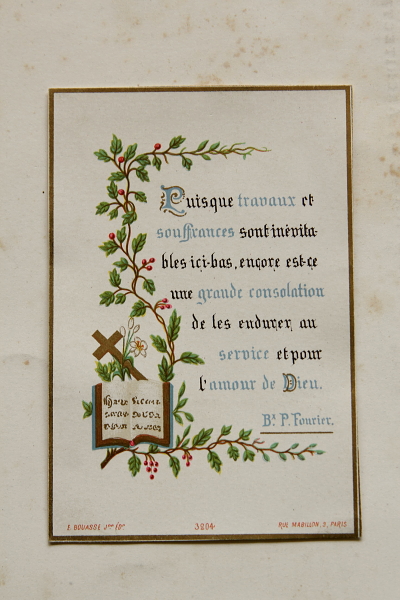 Puisque travaux et
souffrances sont inévita-
bles ici-bas, encore est-ce
une grande consolation
de les endurer au
service et pour
l'amour de Dieu.
Bx P. Fourier.
E. BOUASSE Jne Édr.
3204
RUE MABILLON, 2, PARIS